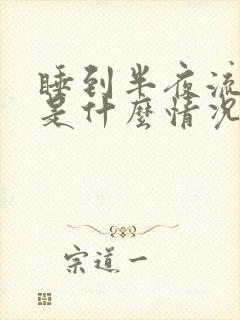 睡到半夜流
是什麼情況
宗道一